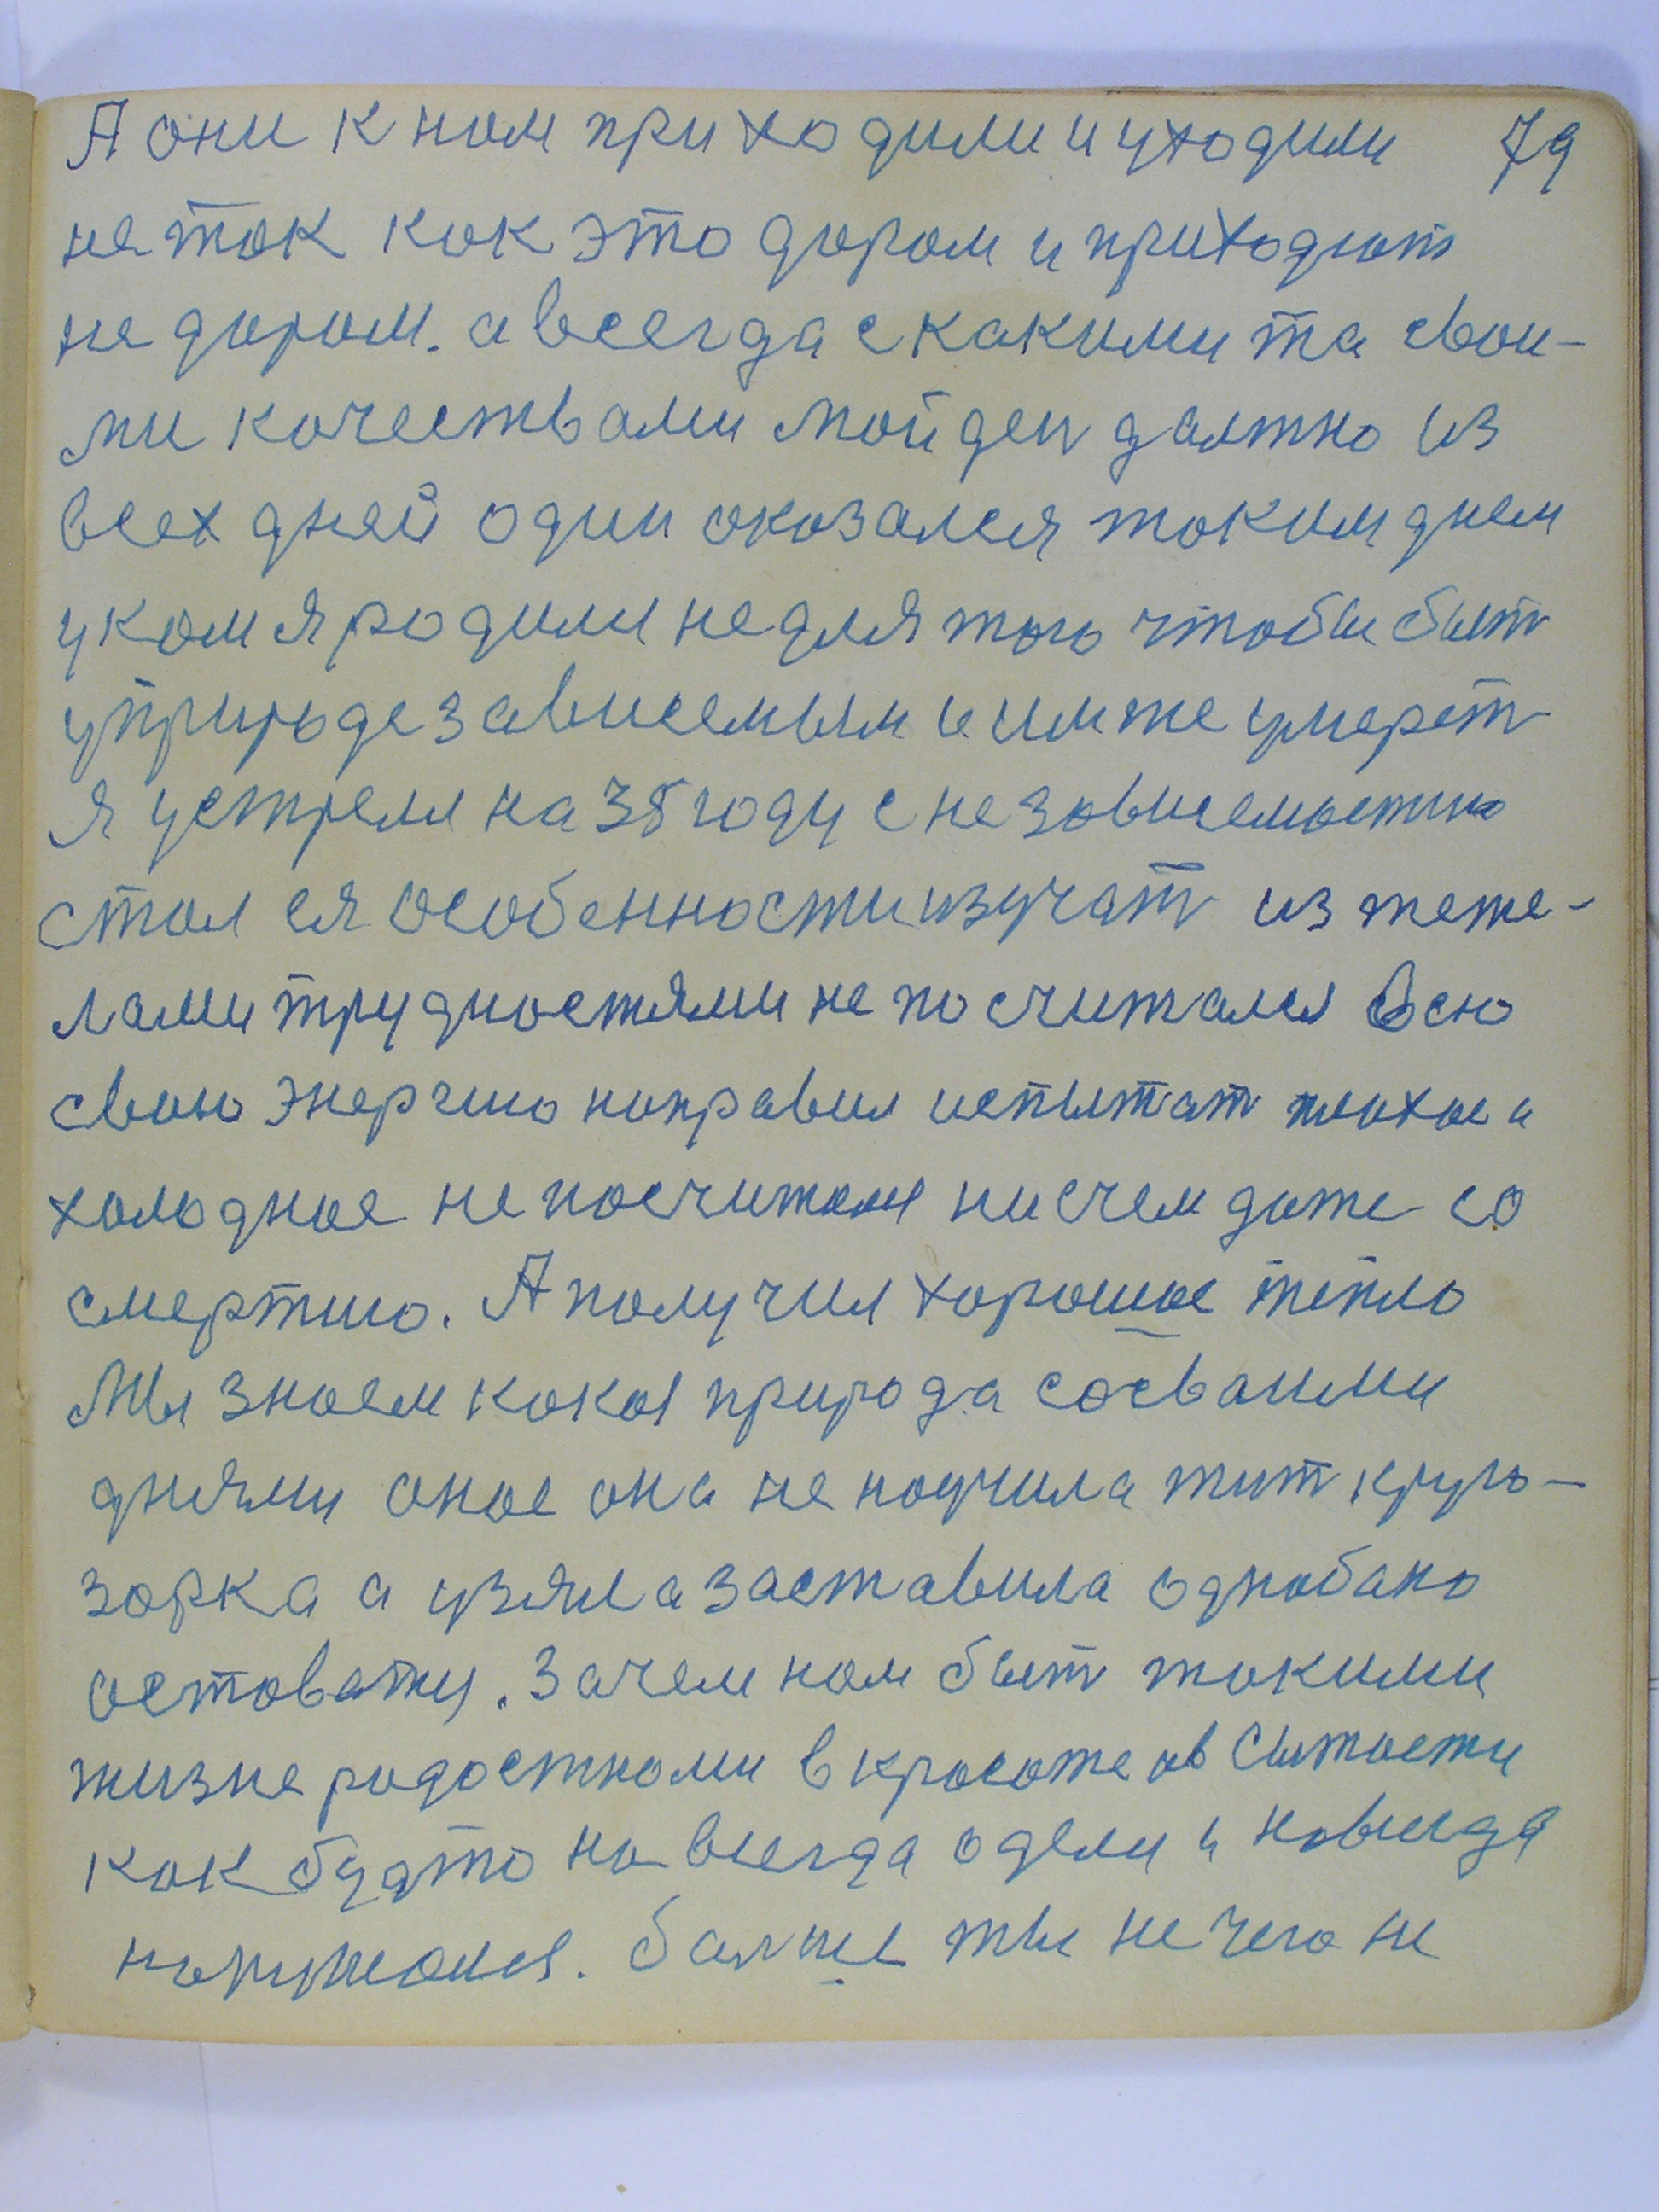 А они к ном приходили и уходили 79
не ток кок это даром и приходют
не даром. а всегда с какими та свои-
ми кочествами мой ден должно из
всех дней один оказался током днем
у ком я родили не для того чтобы быт
у природе зависемым и им же умерет
Я устрелл на 35 году с независемостию
стол ея особенности изучат из теже-
лами трудностями не посчитался всю
свою энергию направил испытат плохое и
холодное не посчитался ни с чем даже со
смертию. А получил хорошое тепло
Мы знаем какоя природа со сваими
днями оное она не научила жит круго-
зорка а узяла заставила однобако
остоватця. Зачем нам быт токими
жизнерадостноми в красоте ив Сытости
как будто на всегда одели и навсегда
. балше ты не чего не